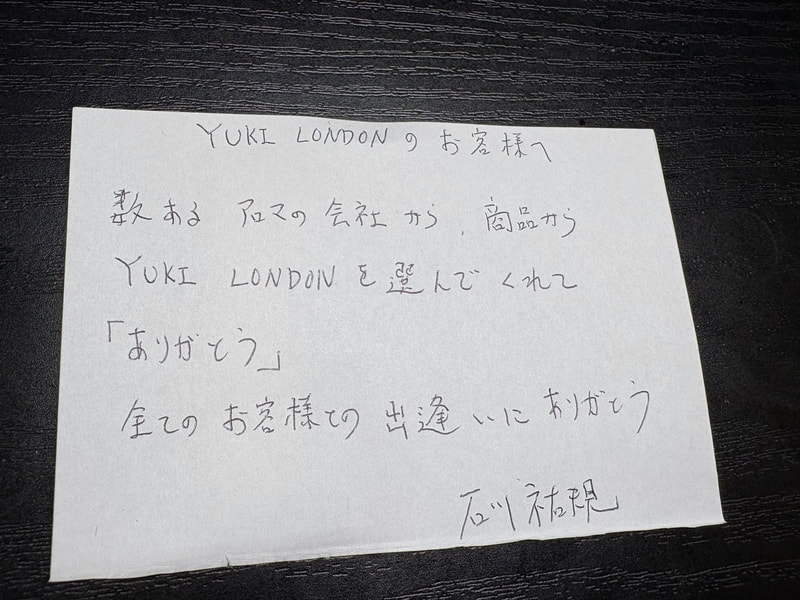 YUKI LONDONのお客様へ
数あるアロマの会社から、商品から
YUKI LONDONを選んでくれて
「ありがとう」
全てのお客様との出逢いにありがとう
石川祐規